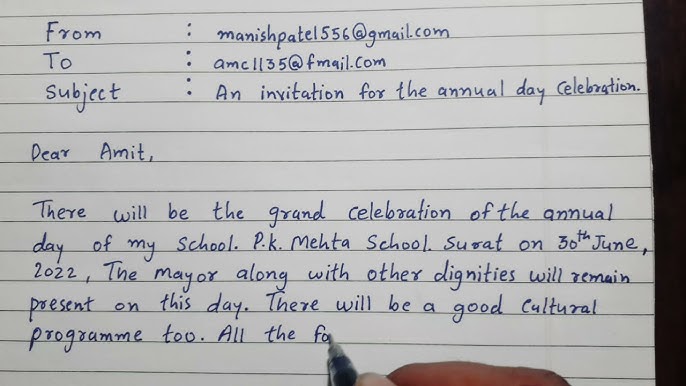 From : manishpatel556@gmail.com
To : amc1135@fmail.com
Subject : An invitation for the annual day Celebration.
Dear Amit,
There will be the grand celebration of the annual
day of my School. P.K. Mehta School. Surat on 30th June,
2022, The mayor along with other dignities will remain
present on this day. There will be a good Cultural
programme too. All the fa